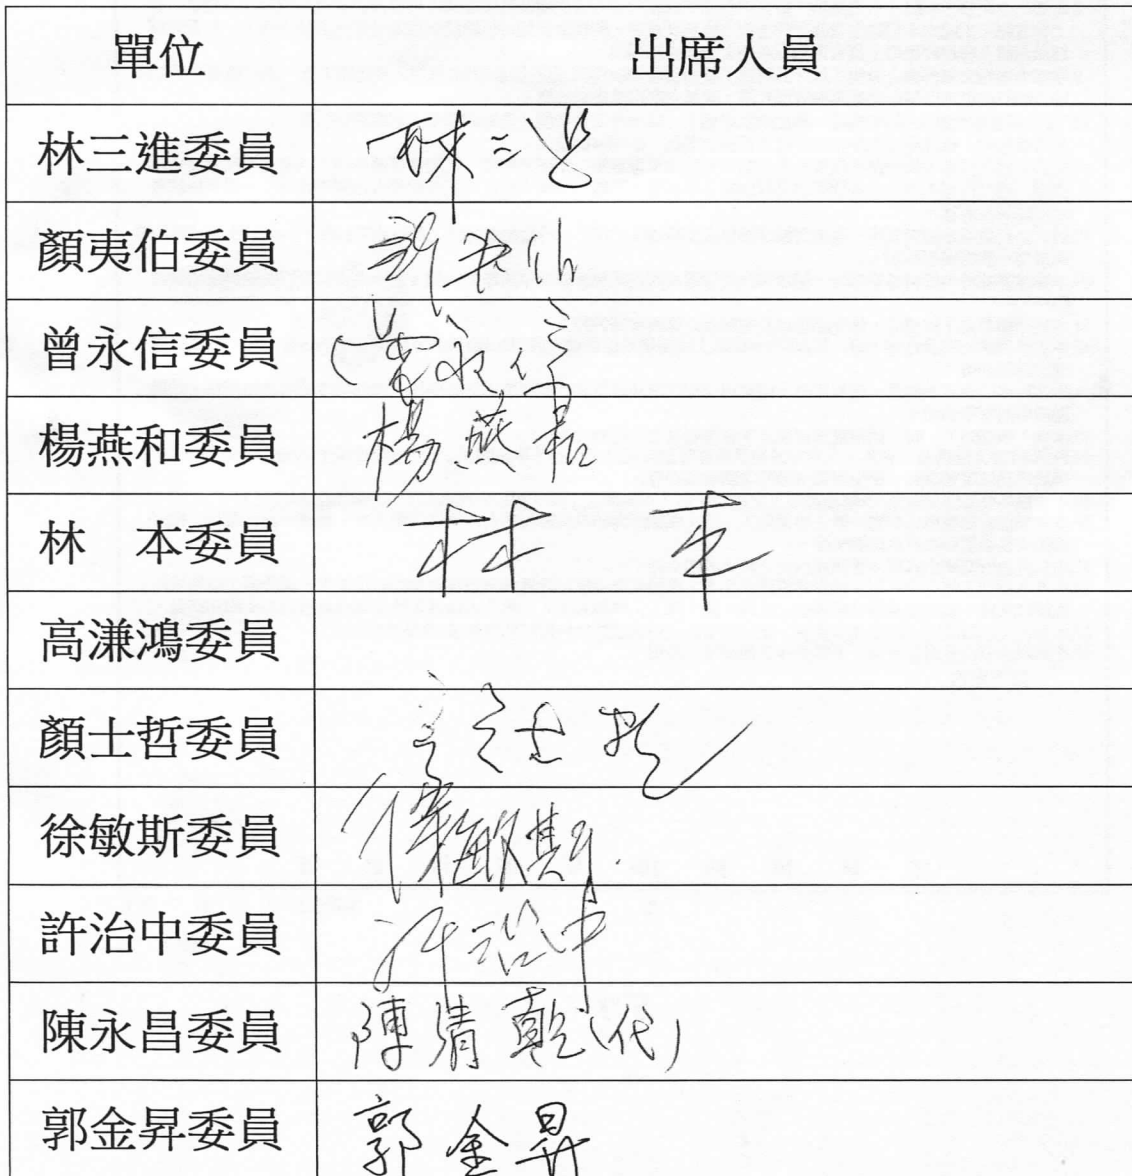 單位 出席人員
林三進委員 林三進
顏夷伯委員
曾永信委員 曾永信
楊燕和委員 楊燕和
林 本委員 林 本
高溓鴻委員
顏士哲委員 顏士哲
徐敏斯委員 徐敏斯
許治中委員 許治中
陳永昌委員 陳清乾(代)
郭金昇委員 郭金昇